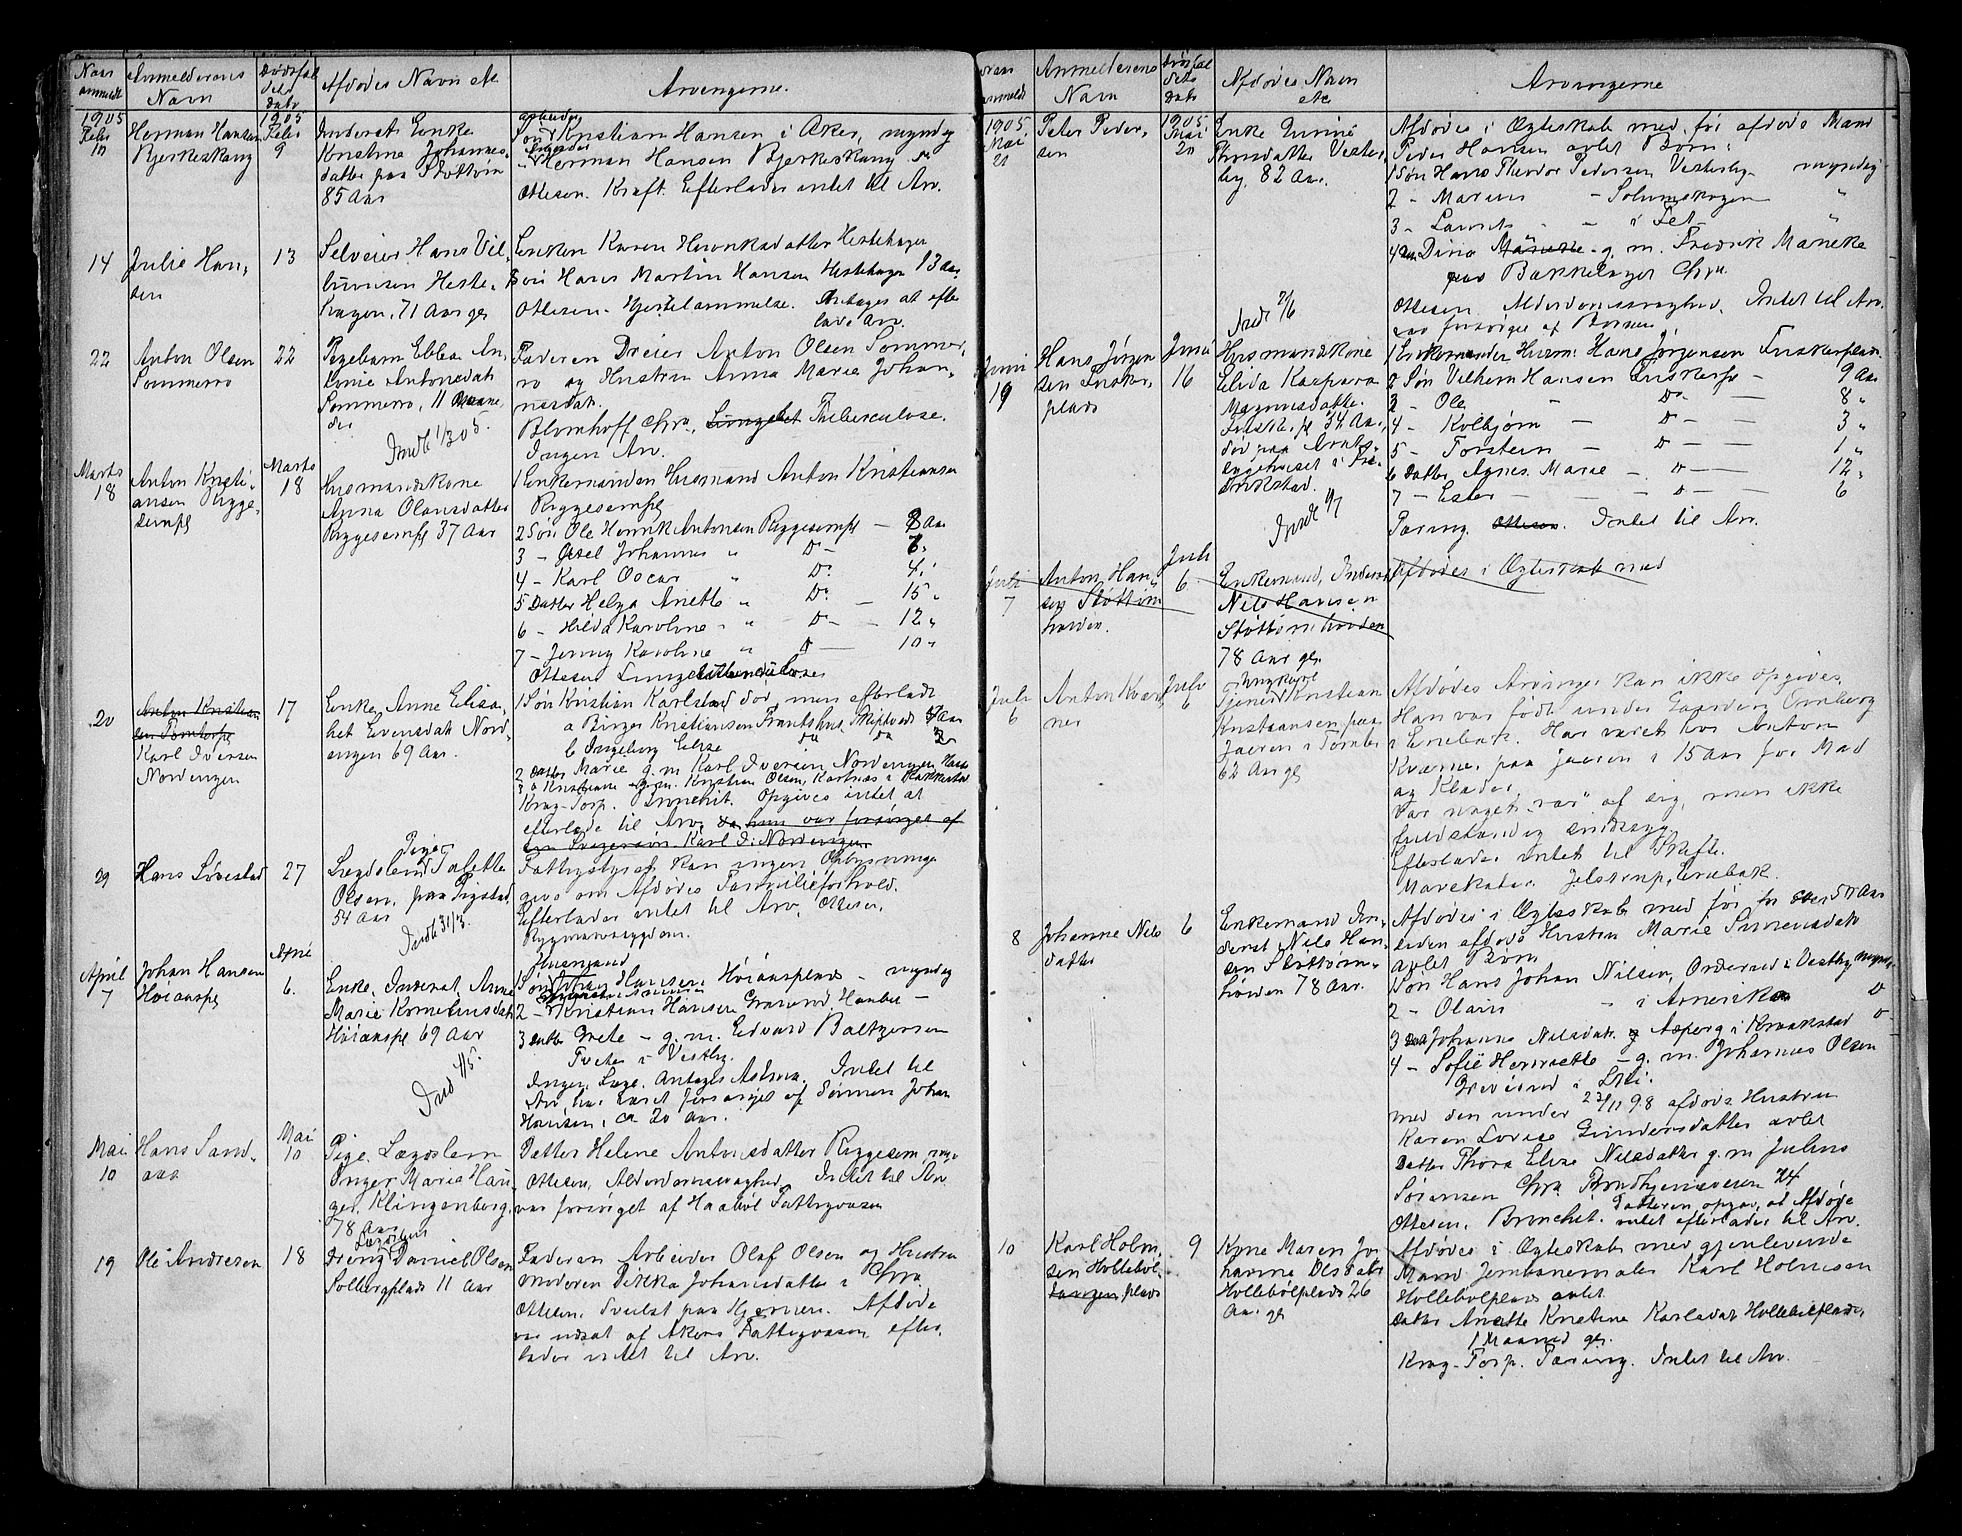 Naar anmeldt
Anmelderens Navn
Dødsfaldets Dato
Afdødes Navn etc
Arvingerne.
1905 Febr 10
Herman Hansen
Bjerkeskaug
1905 Febr 9
Inderst Enke
Kristine Johannes-
datter paa Støttom
85 Aar
arbeider
Søn Kristian Hansen i Aker, myndig
" Herman Hansen Bjerkeskaug
Ottesen. Kræft. Efterlader intet til Arv.
14
Julie Han-
sen
13
Selveier Hans Vil-
Heste-
hagen, 71 Aar gl
Enken Karen Henriksdatter Hestehagen
Søn Hans Martin Hansen Hestehagen 13 Aar
Ottesen. Hjertelammelse. Antages at efter
lade Arv.
22
Anton Olsen
Sommerro
22
Pigebarn Ebba An-
tonie Antonsdatr
Sommerro, 11 Maane-
der
Indb 1/3 05.
Faderen Dreier Anton Olsen Sommer-
ro og Hustru Anna Marie Johan-
nesdatr.
Blomhoff Chra, Lungebet Tuberculose.
Ingen Arv.
Marts 18
Anton Kristi-
ansen Rygge-
sempl
Marts 18
Husmandskone
Anna Olausdatter
Ryggesempl 37 Aar
1 Enkemanden Husmand Anton Kristiansen
Ryggesempl
2 Søn Ole Henrik Antonsen Ryggesempl - 8 Aar
3 - Axel Johannes " Do - 6 "
4 - Karl Oscar " Do 4 "
5 Datter Helga Anette " Do - 15 "
6 - Hilda Karoline - " Do - 12 "
7 - Jenny Karoline " Do - 10 "
Ottesen Lungetuberculose
20
Anton Kristian
Karl Iversen
Nordengen
17
Enke, Anne Elisa-
bet Evensdatr Nord-
engen 69 Aar.
1 Søn Kristian Karlstad død, men efterladt
a Birger Kristiansen
b Ingeborg Elise Do Do
2 Datter Marie g. m Karl Iversen Nordengen
3 " Kristiane g. m. Kristian Olsen, Karlnes i Krakkestad
Krag-Torp. Bronchit. Opgives intet at
efterlade til Arv, da hun var forsørget af
sin Svigersøn Karl I. Nordengen
29
Hans Løvestad
27
Pige
Lægdslem Talette
Olsen, paa Pigstad
54 Aar
Indb 31/3.
Fattigstyret kan ingen Oplysninger
give om Afdødes Familieforhold.
Efterlader intet til Arv. Ottesen.
Rygmarvssygdom.
April 7
Johan Hansen
Høiaaspl
April 6.
Enke, Inderst, Anne
Marie Kornelinsdatr
Høiaaspl 69 Aar
Ind 4/5.
Husmand
1 Søn Johan Hansen Høiaasplads - myndig
2 - Kristian Hansen
3 Datter Grete - g. m. Edvard Baltzersen
Tveter i Vestby.
Ingen Læge. Antages Astma. Intet til
Arv, har været forsørget af Sønnen Johan
Hansen, ca 20 Aar.
Mai 10
Hans Sand-
aas
Mai 10
Pige. Lægdslem
Inger Marie Han-
Klingenberg.
78 Aar
Datter Helene Antonsdatter Ryggesem,
Ottesen, Alderdomssvaghed. Intet til Arv
var forsørget af Haabøl Fattigvæsen
19
Ole Andresen
18
Lægdslem
Dreng Daniel Olsen
Solbergplads 11 Aar
Faderen Arbeider Olaf Olsen og Hustru
Moderen Dikka Johansdatter i Chra
Ottesen. Svulst paa Hjernen. Afdøde
var udsat af Akers Fattigvæsen, efter-
lader intet til Arv.
Naar anmeldt
Anmelderens Navn
Dødsfaldets Dato
Afdødes Navn etc
Arvingerne
1905 Mai 21
Peter Peder-
sen
1905 Mai 20
Enke
Vester-
by. 82 Aar.
Indb 7/6
Afdødes i Ægteskab med før afdøde Mand
Peder Hansen avlet Børn:
1 Søn Hans Theodor Pedersen Vesterby - myndig
2 - Marius - Solumskogen "
3 - Laurits - - i Fet - "
4 Datr Dina Maneke - g. m. Fredrik Maneke
paa Bækkelaget Chra
Ottesen. Alderdomssvaghed. Intet til Arv.
var forsørget af Børnene
Juni 19
Hans Jørgen
sen Fusker-
plads
Juni 16
Husmandskone
Elida Kaspara
Magnusdatter.
Fuskerpl 34 Aar,
død paa
i Fre-
drikstad.
Indb 4/7
1 Enkemanden Husm. Hans Jørgensen Fuskerplads
2 Søn Vilhelm Hansen Fuskerpl - 9 Aar
3 - Ole - Do - 8 "
4 - Kolbjørn - Do - 3 "
5 - Torstein - Do - 1 "
6 Datter Agnes Marie - Do - 12 "
7 - Ester - - Do - 6
Tæring. Ottesen. Intet til Arv.
Juli 7
Anton Han-
sen Støttum
hviden.
Juli 6
Enkemand, Inderst
Nils Hansen
Støttumhviden
78 Aar gl.
Afdødes i Ægteskab med
Juli 6
Anton Kvær-
ner
Juli 6
Ungkarl
Tjener Kristian
Kristiansen paa
Jaeren i Tomber
62 Aar gl
Afdødes Arvinger kan ikke opgives.
Han var født under Gaarden Ornberg
i Enebak. Har været hos Anton
Kværner paa Jaeren i 15 Aar for Mad
og Klæder.
Var noget "rar" af sig, men ikke
fuldstændig sindssyg
Efterlader intet til Skifte.
Marekaten, Jelstrup, Enebak.
8
Johanne Nils
datter
6
Enkemand In-
derst Nils Han-
sen Støttum-
hviden 78 Aar.
Afdødes i Ægteskab med før for over 50 Aar
siden afdøde Hustru Marie Simensdatr
avlet Børn
Søn Hans Johan Nilsen, Onderud i Vestby, mynd.
2 - Olaus - i Amerika Do
3 Datr Johanne Nilsdatr. Asperg i Kraakstad Do
4 - Sofie Henriette - g. m. Johannes Olsen
Greverud i Ski.
med den under 27/11 98 afdøde Hustru
Karen Lovise Gundersdatter avlet
Datter Thora Elise Nilsdatter g. m Julius
Sørensen Chra Trondhjemsveien 24
Ottesen. Bronchit. Datteren opgav, at Afdøde
intet efterlader til Arv.
10
Karl Holm-
sen Hollebøl-
plads
9
Kone Maren Jo
hanne Olsdatr
Hollebølplads 26
Aar gl
Afdødes i Ægteskab med gjenlevende
Mand Jernbanemaler Karl Holmsen
Hollebølplads avlet
Datter Anette Kristine Karlsdatr Hollebølplads,
1 Maaned gl.
Krag-Torp. Tæring. Intet til Arv.